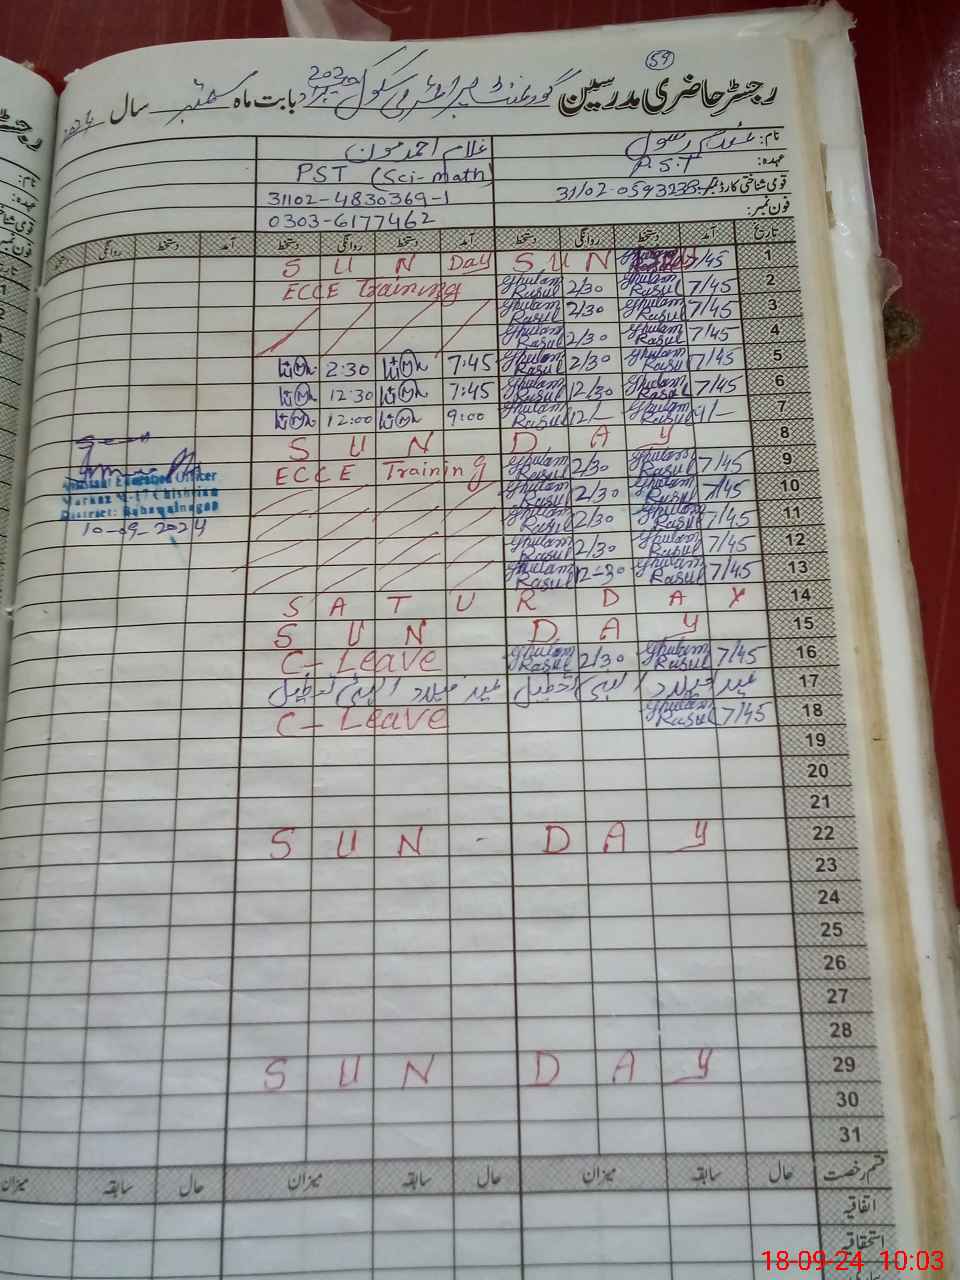 59
رجسٹر حاضری مدرسین گورنمنٹ پرائمری سکول بابت ماہ ستمبر سال 2024
نام: غلام رسول غلام احمد مون
عہدہ: P.S.T PST (Sci-math)
قومی شناختی کارڈ 31102-4830369-1
فون نمبر: 0303-6177462
تاریخ آمد دستخط روانگی دستخط آمد دستخط روانگی دستخط آمد دستخط روانگی دستخط
1 7/45 S U N S U N Day
2 7/45 Ghulam Rasul 2/30 Ghulam Rasul ECCE Training
3 7/45 Ghulam Rasul 2/30 Ghulam Rasul
4 7/45 Ghulam Rasul 2/30 Ghulam Rasul
5 7/45 Ghulam Rasul 2/30 Ghulam Rasul 7:45 2:30
6 7/45 Ghulam Rasul 12/30 Ghulam Rasul 7:45 12:30
7 9/- Ghulam Rasul 12/- Ghulam Rasul 9:00 12:00
8 S U N D A Y
9 7/45 Ghulam Rasul 2/30 Ghulam Rasul ECCE Training
10 7/45 Ghulam Rasul 2/30 Ghulam Rasul
11 7/45 Ghulam Rasul 2/30 Ghulam Rasul
12 7/45 Ghulam Rasul 2/30 Ghulam Rasul
13 7/45 Ghulam Rasul 12-30 Ghulam Rasul
14 S A T U R D A Y
15 S U N D A Y
16 7/45 Ghulam Rasul 2/30 Ghulam Rasul C-Leave
17 عید میلاد النبی تعطیل عید میلاد النبی تعطیل
18 7/45 Ghulam Rasul C-Leave
19
20
21
22 S U N - D A Y
23
24
25
26
27
28
29 S U N D A Y
30
31
Assistant Education Officer
Markaz Chishtian
District: Bahawalnagar
10-09-2024
قسم رخصت حال سابقہ میزان حال سابقہ میزان حال سابقہ میزان
اتفاقیہ
استحقاقیہ
18-09-24 10:03